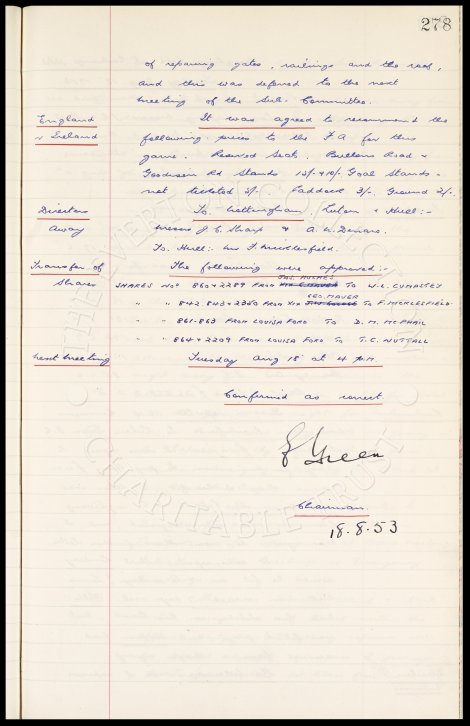 278
of repairing gates, railings and the roof,
and this was deferred to the next
meeting of the Sub-Committee.
England It was agreed to recommend the
v Ireland following prices to the F A for this
game. Reserved Seats. Bullens Road &
Goodison Rd Stands 15/- & 10/- Goal Stands -
not ticketed 5/-. Paddock 3/-. Ground 2/-.
Directors To. Nottingham, Luton & Hull:-
Away Messrs J. C. Sharp & A. W. Denaro.
To. Hull:- Mr F. Micklesfield.
Transfer of The following were approved:-
JAS. HUGHES
Shares SHARES Nos 860 & 2289 FROM TO W. L. CUMAFSEY
GEO. MAVER
" " 842. 843 & 2350 FROM TO F. MICKLESFIELD.
" " 861-863 FROM LOUISA FORD TO D. M. MCPHAIL
" " 864 & 2209 FROM LOUISA FORD TO T. C. NUTTALL
Next Meeting Tuesday Aug 18 at 4 P.M.
Confirmed as correct
E Green
Chairman
18.8.53
THE EVERTON COLLECTION
CHARITABLE TRUST